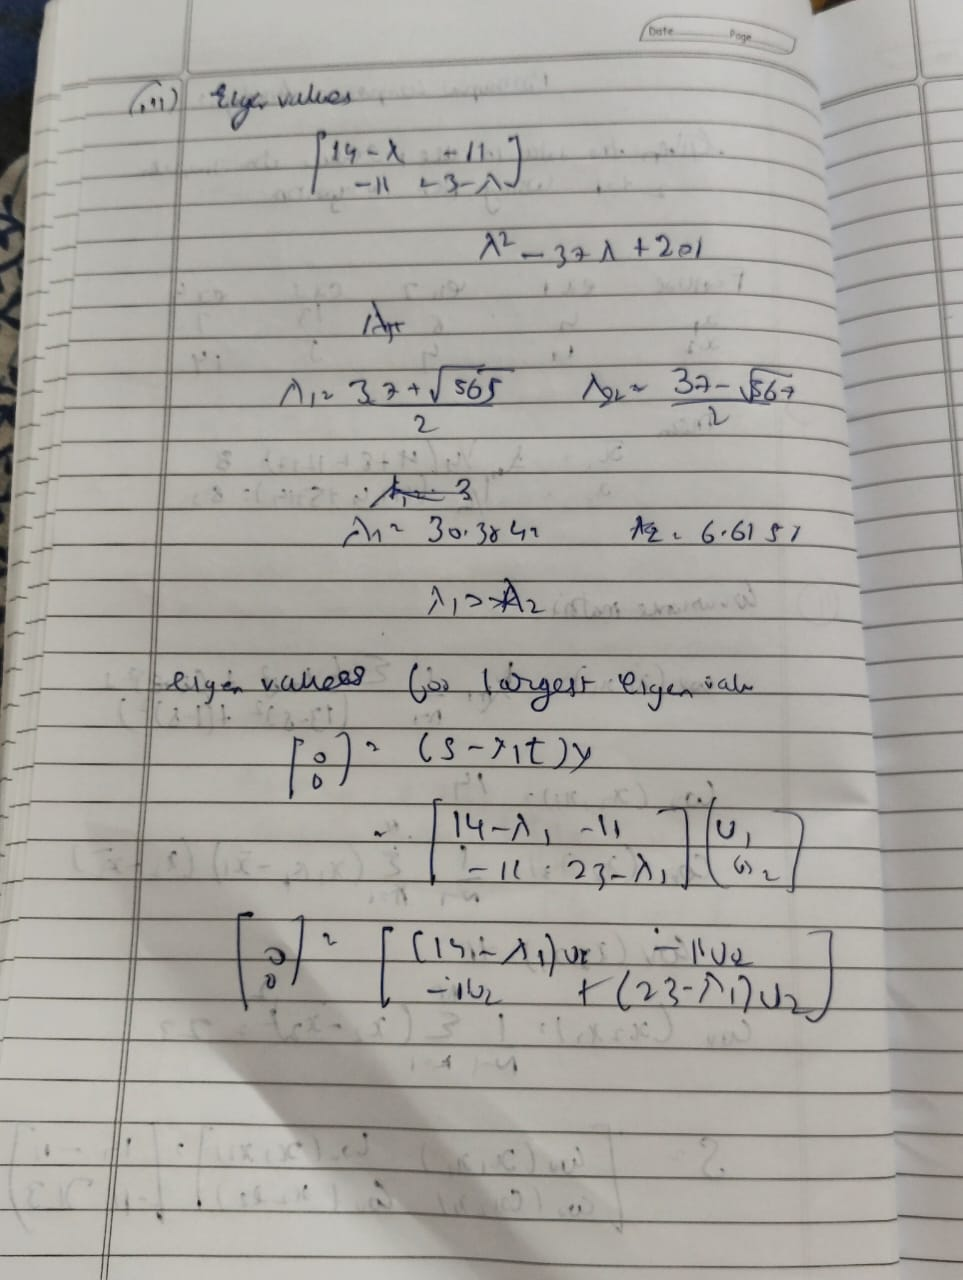 Date Page
(iii) Eigen values
[14-λ +11
-11 +3-λ]
λ² - 37λ + 201
λ₁ = 37 + √565 / 2 λ₂ = 37 - √567 / 2
λ₁ = 30.3842 λ₂ = 6.6157
λ₁ > λ₂
eigen values for largest eigen valu
[0 0] = (S - λ₁I) U
= [14-λ₁ -11
-11 23-λ₁] [U₁ U₂]
[0 0] = [(14-λ₁)U₁ -11U₂
-11U₂ + (23-λ₁)U₂]